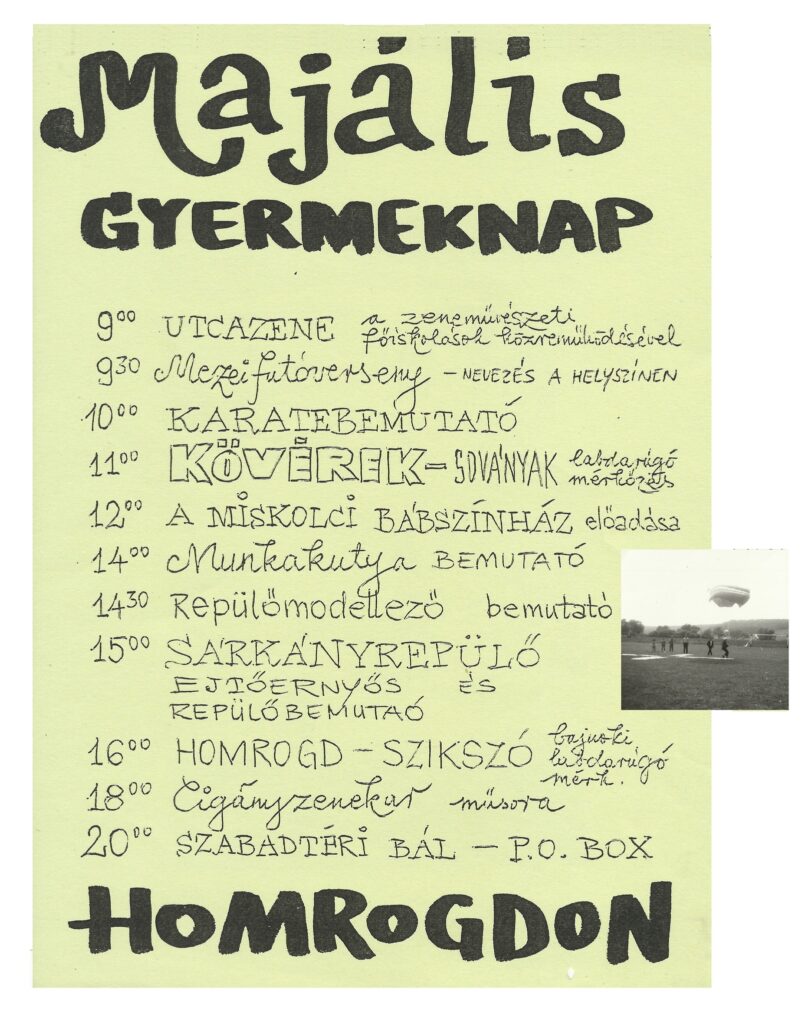 Majális
GYERMEKNAP
9⁰⁰ UTCAZENE a zeneművészeti
főiskolások közreműködésével
9³⁰ Mezei futóverseny – NEVEZÉS A HELYSZÍNEN
10⁰⁰ KARATEBEMUTATÓ
11⁰⁰ KÖVÉREK – SOVÁNYAK labdarúgó
mérkőzés
12⁰⁰ A MISKOLCI BÁBSZÍNHÁZ előadása
14⁰⁰ Munkakutya BEMUTATÓ
14³⁰ Repülőmodellező bemutató
15⁰⁰ SÁRKÁNYREPÜLŐ
EJTŐERNYŐS ÉS
REPÜLŐBEMUTAÓ
16⁰⁰ HOMROGD – SZIKSZÓ bajnoki
labdarúgó
mérk.
18⁰⁰ Cigányzenekar műsora
20⁰⁰ SZABADTÉRI BÁL – P.O. BOX
HOMROGDON